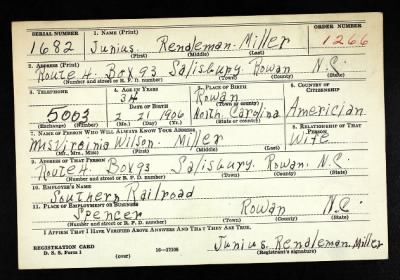 SERIAL NUMBER 1. NAME (Print) ORDER NUMBER
1682 Junius Rendleman Miller 1266
(First) (Middle) (Last)
2. ADDRESS (Print)
Route 4. Box 93 Salisbury. Rowan N.C.
(Number and street or R. F. D. number) (Town) (County) (State)
3. TELEPHONE 4. AGE IN YEARS 5. PLACE OF BIRTH 6. COUNTRY OF CITIZENSHIP
34 Rowan
DATE OF BIRTH (Town or county)
5003 2 21 1906 North Carolina Americian
(Exchange) (Number) (Mo.) (Day) (Yr.) (State or country)
7. NAME OF PERSON WHO WILL ALWAYS KNOW YOUR ADDRESS 8. RELATIONSHIP OF THAT PERSON
Mrs Virginia Wilson. Miller Wife
(Mr., Mrs., Miss) (First) (Middle) (Last)
9. ADDRESS OF THAT PERSON
Route 4 Box 93 Salisbury. Rowan. N.C.
(Number and street or R. F. D. number) (Town) (County) (State)
10. EMPLOYER'S NAME
Southern Railroad
11. PLACE OF EMPLOYMENT OR BUSINESS
Spencer Rowan N.C.
(Number and street or R. F. D. number) (Town) (County) (State)
I AFFIRM THAT I HAVE VERIFIED ABOVE ANSWERS AND THAT THEY ARE TRUE.
REGISTRATION CARD
D. S. S. Form 1 (over) 16—17105 Junius. Rendleman. Miller
(Registrant's signature)